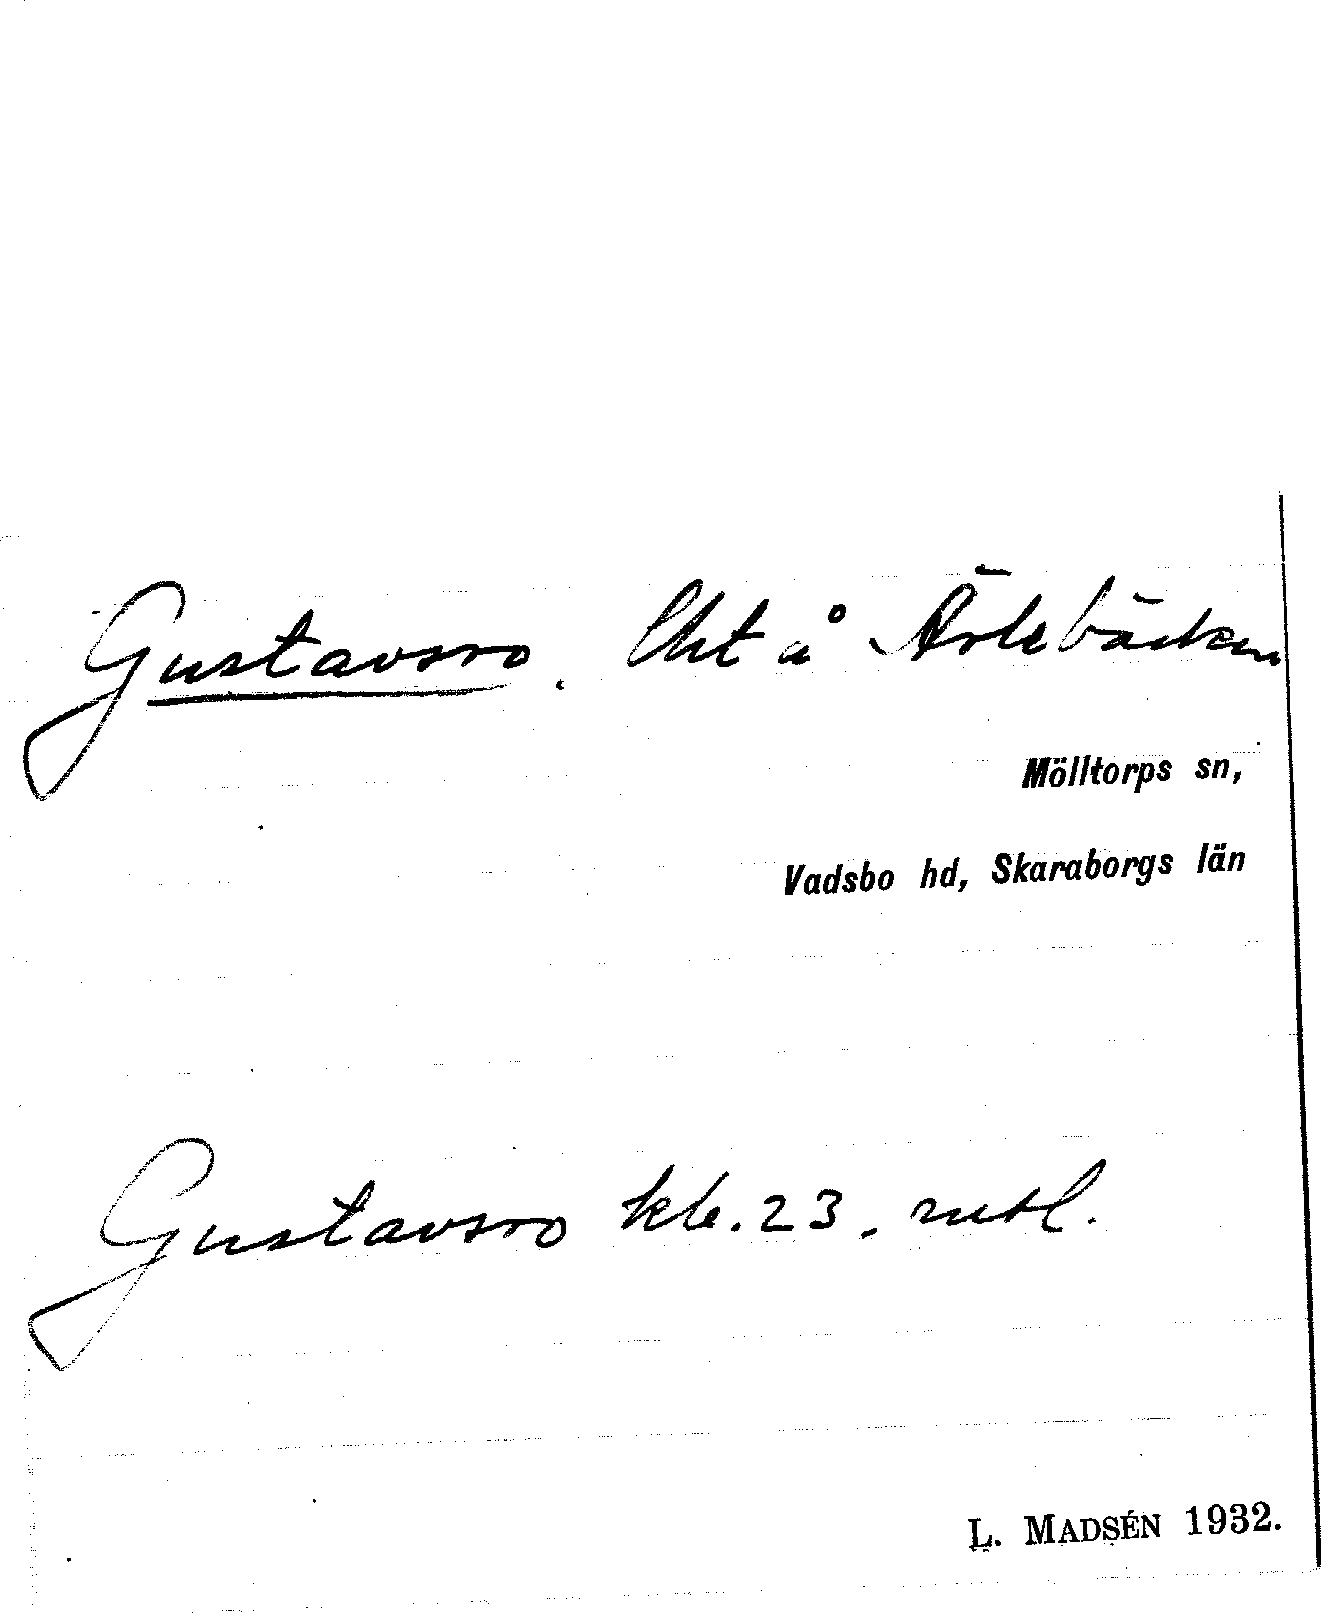 Gustavsro. Lht å Ärlebäcken
Mölltorps sn,
Vadsbo hd, Skaraborgs län
Gustavsro kbr. 23. rutl.
L. MADSÉN 1932.